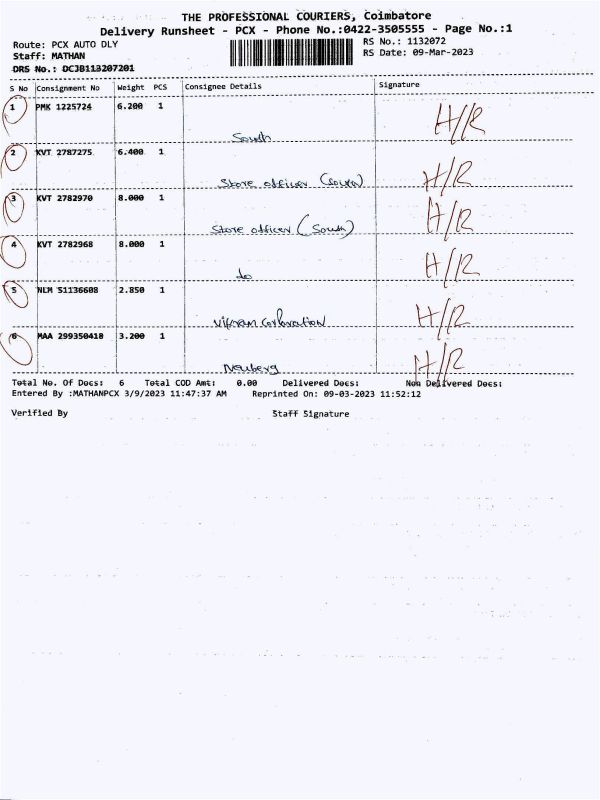 THE PROFESSIONAL COURIERS, Coimbatore
Delivery Runsheet - PCX - Phone No.:0422-3505555 - Page No.:1
Route: PCX AUTO DLY RS No.: 1132072
Staff: MATHAN RS Date: 09-Mar-2023
DRS No.: DCJB113207201
S No Consignment No Weight PCS Consignee Details Signature
1 PMK 1225724 6.200 1 H/R
South
2 KVT 2787275 6.400 1
Store officer (South) H/R
3 KVT 2782970 8.000 1 H/R
Store officer (South)
4 KVT 2782968 8.000 1 H/R
do
5 NLM 51136608 2.850 1
Vikram Corporation H/R
6 MAA 299350418 3.200 1
Neuberg H/R
Total No. Of Docs: 6 Total COD Amt: 0.00 Delivered Docs: Non Delivered Docs:
Entered By :MATHANPCX 3/9/2023 11:47:37 AM Reprinted On: 09-03-2023 11:52:12
Verified By Staff Signature